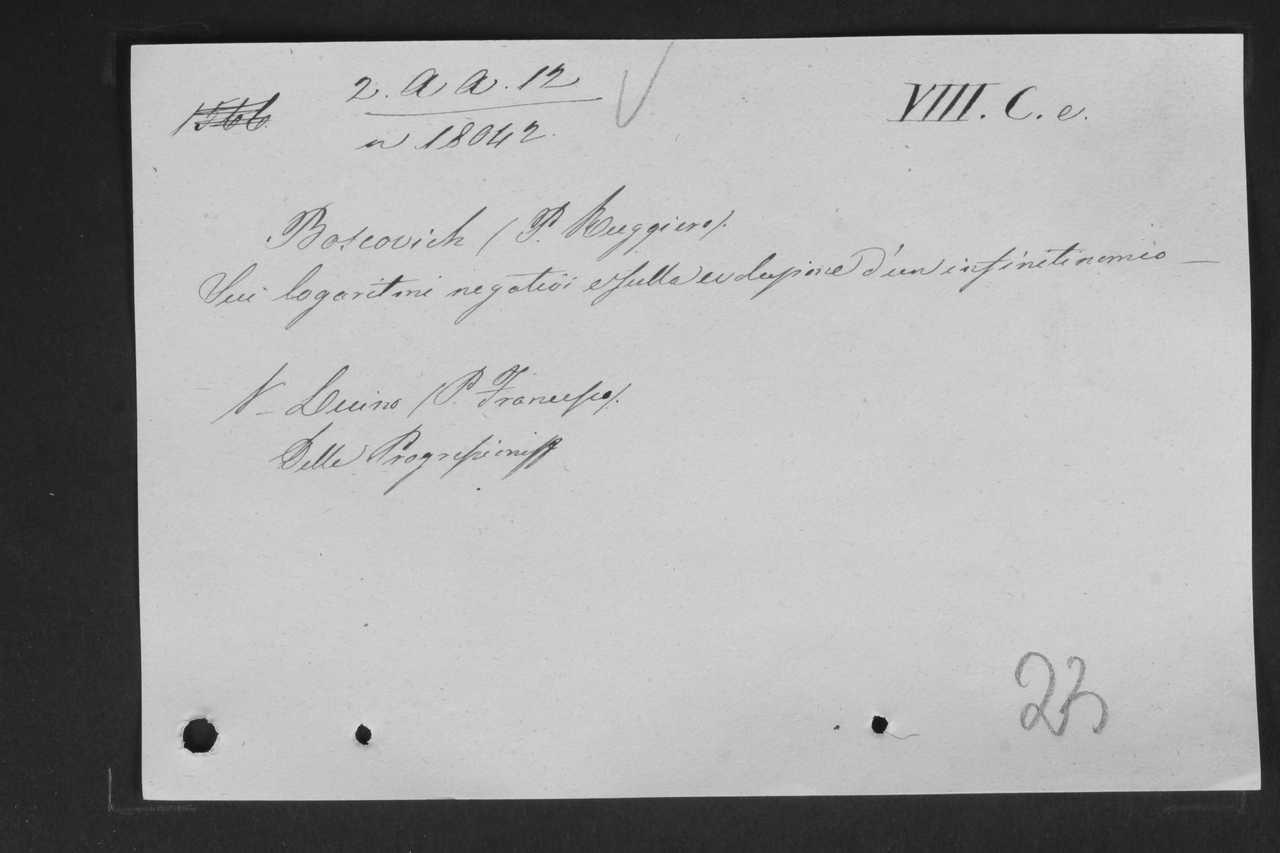 1566
2. A A. 12
n 18042.
VIII. C. e.
Boscovich (P. Ruggiero).
Sui logaritmi negativi e sulla evoluzione d'un infinitinomio —
V– Luino (P. Francesco).
Delle Progressioni pp
23